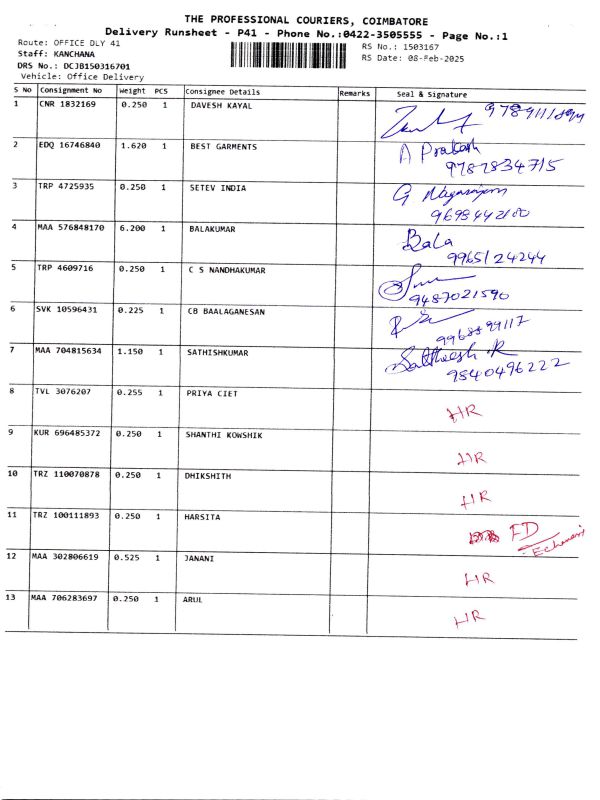 THE PROFESSIONAL COURIERS, COIMBATORE
Delivery Runsheet - P41 - Phone No.:0422-3505555 - Page No.:1
Route: OFFICE DLY 41 RS No.: 1503167
Staff: KANCHANA RS Date: 08-Feb-2025
DRS No.: DCJB150316701
Vehicle: Office Delivery
S No Consignment No Weight PCS Consignee Details Remarks Seal & Signature
1 CNR 1832169 0.250 1 DAVESH KAYAL
2 EDQ 16746840 1.620 1 BEST GARMENTS A Prakash
9787834715
3 TRP 4725935 0.250 1 SETEV INDIA G
9698442100
4 MAA 576848170 6.200 1 BALAKUMAR Bala
9965124244
5 TRP 4609716 0.250 1 C S NANDHAKUMAR
9487021590
6 SVK 10596431 0.225 1 CB BAALAGANESAN
7 MAA 704815634 1.150 1 SATHISHKUMAR Satheesh R
9540496222
8 TVL 3076207 0.255 1 PRIYA CIET HR
9 KUR 696485372 0.250 1 SHANTHI KOWSHIK HR
10 TRZ 110070878 0.250 1 DHIKSHITH HR
11 TRZ 100111893 0.250 1 HARSITA FD
12 MAA 302806619 0.525 1 JANANI HR
13 MAA 706283697 0.250 1 ARUL HR